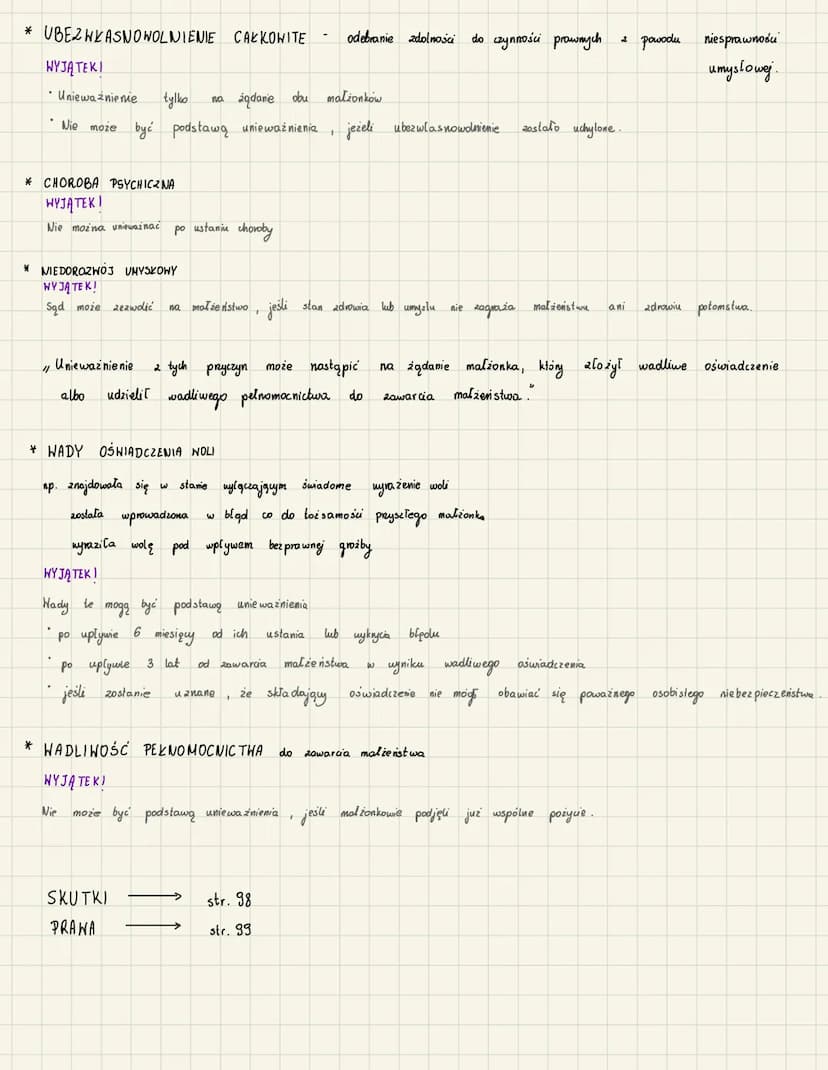 * UBEZWŁASNOWOLNIENIE CAŁKOWITE - odebranie zdolności do czynności prawnych z powodu niesprawności
umysłowej.
WYJĄTEK!
· Unieważnienie tylko na żądanie obu małżonków
· Nie może być podstawą unieważnienia, jeżeli ubezwłasnowolnienie zostało uchylone.
* CHOROBA PSYCHICZNA
WYJĄTEK!
Nie można unieważnać po ustaniu choroby
* NIEDOROZWÓJ UMYSŁOWY
WYJĄTEK!
Sąd może zezwolić na małżeństwo, jeśli stan zdrowia lub umysłu nie zagraża małżeństwu ani zdrowiu potomstwa.
„Unieważnienie z tych przyczyn może nastąpić na żądanie małżonka, który złożył wadliwe oświadczenie
albo udzielił wadliwego pełnomocnictwa do zawarcia małżeństwa."
* WADY OŚWIADCZENIA WOLI
np. znajdowała się w stanie wyłączającym świadome wyrażenie woli
została wprowadzona w błąd co do tożsamości przyszłego małżonka
wyraziła wolę pod wpływem bezprawnej groźby
WYJĄTEK!
Wady te mogą być podstawą unieważnienia
· po upływie 6 miesięcy od ich ustania lub wykrycia błędu
· po upływie 3 lat od zawarcia małżeństwa w wyniku wadliwego oświadczenia
· jeśli zostanie uznane, że składający oświadczenie nie mógł obawiać się poważnego osobistego niebezpieczeństwa.
* WADLIWOŚĆ PEŁNOMOCNICTWA do zawarcia małżeństwa
WYJĄTEK!
Nie może być podstawą unieważnienia, jeśli małżonkowie podjęli już wspólne pożycie.
SKUTKI → str. 98
PRAWA → str. 99